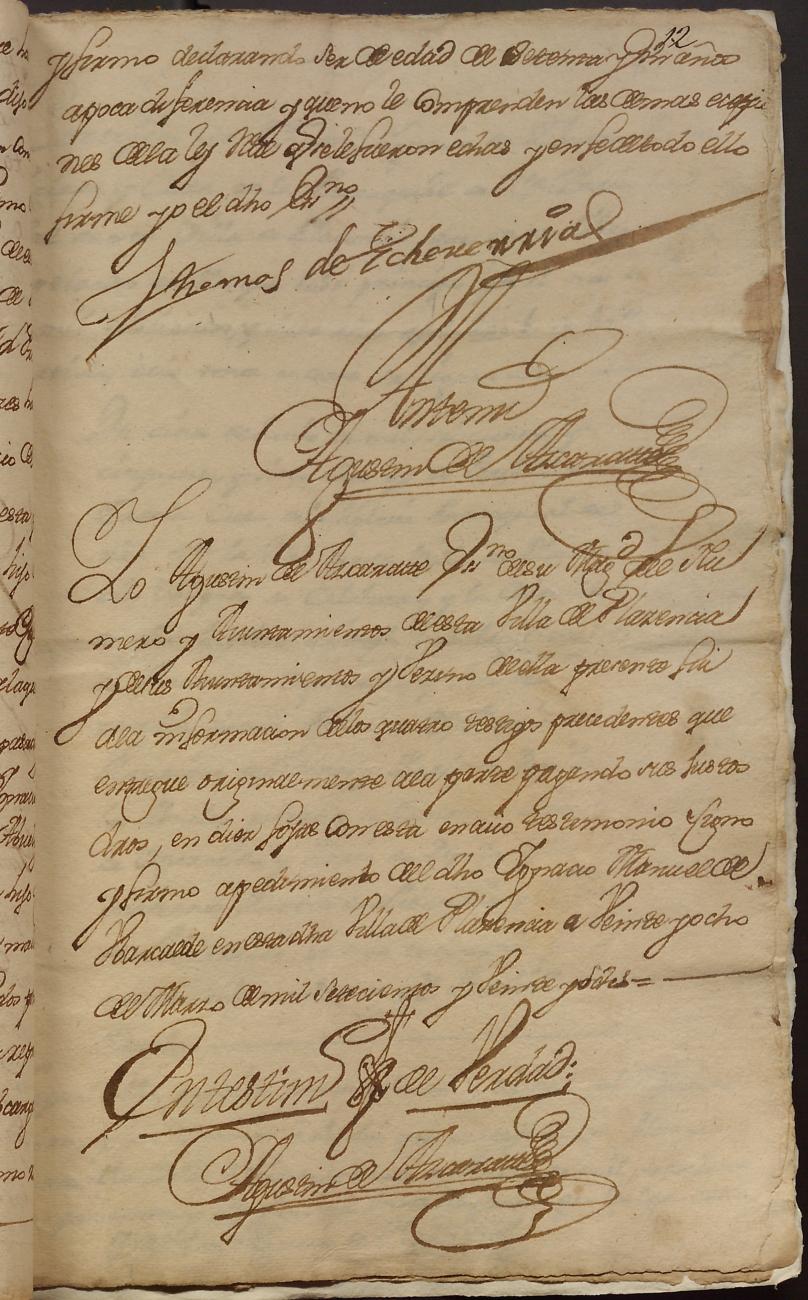 12
y firmo declarando ser de edad de setenta y un años
apoca diferencia y queno le Comprenden las demas ecepci
nes dela ley que le fueron echas y en fe de todo ello
firme yo el dho Ssno
Thomas de Echeverria
Antemi
Agustin de Ascarate
Yo Agustin de Ascarate Ssno de su Magd del Nu
mero y Aiuntamientos de esta Villa de Plazencia
y de sus Aiuntamientos y Vezino de ella presente fui
ala informacion de los quatro testigos precedentes que
entregue originalmente ala parte pagando sus justos
dros, en diez fojas con esta en cuio testimonio signo
y firmo apedimiento del dho Ygnacio Manuel de
Barcaede en esta dha Villa de Plazencia a Veinte y ocho
de Marzo de mil setecientos y Veinte y dos =
En testim de Verdad:
Agustin de Ascarate